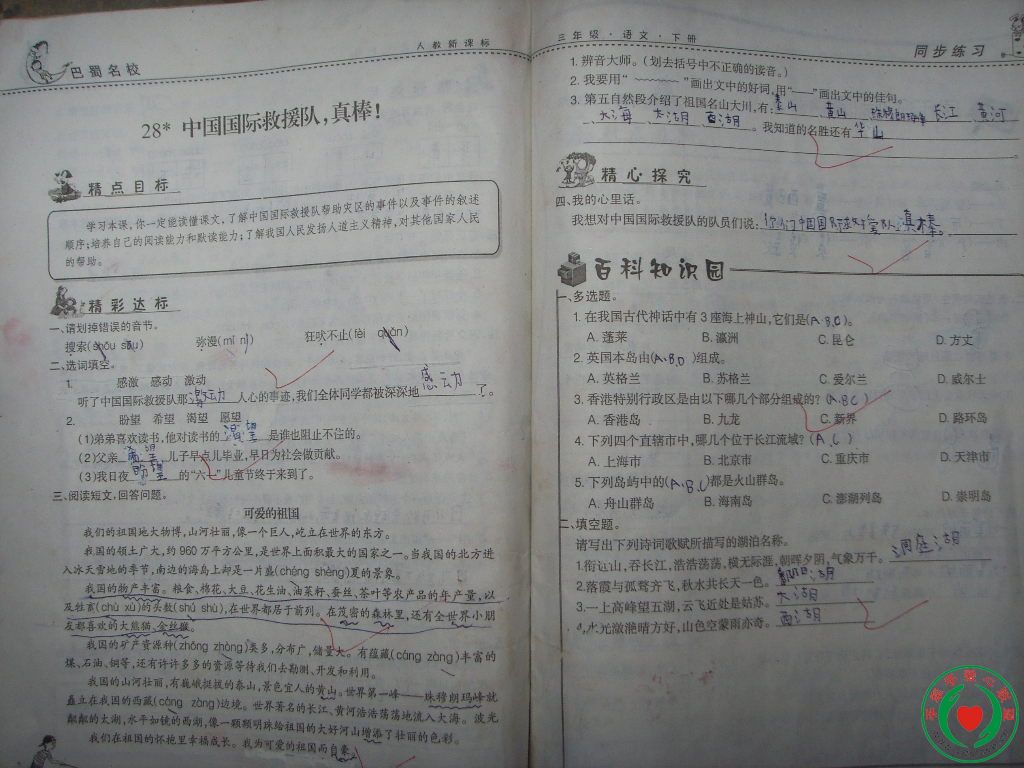 巴蜀名校
人教新课标
28* 中国国际救援队,真棒!
精点目标
学习本课,你一定能读懂课文,了解中国国际救援队帮助灾区的事件以及事件的叙述
顺序;培养自己的阅读能力和默读能力;了解我国人民发扬人道主义精神,对其他国家人民
的帮助。
精彩达标
一、请划掉错误的音节。
搜索(shōu sōu) 弥漫(mǐ mí) 狂吠不止(fèi quǎn)
二、选词填空。
1. 感激 感动 激动
听了中国国际救援队那激动人心的事迹,我们全体同学都被深深地感动了。
2. 盼望 希望 渴望 愿望
(1)弟弟喜欢读书,他对读书的渴望是谁也阻止不住的。
(2)父亲希望儿子早点儿毕业,早日为社会做贡献。
(3)我日夜盼望的“六一”儿童节终于来到了。
三、阅读短文,回答问题。
可爱的祖国
我们的祖国地大物博,山河壮丽,像一个巨人,屹立在世界的东方。
我国的领土广大,约960万平方公里,是世界上面积最大的国家之一。当我国的北方进
入冰天雪地的季节,南边的海岛上却是一片盛(chéng shèng)夏的景象。
我国的物产丰富。粮食、棉花、大豆、花生油、油菜籽、蚕丝、茶叶等农产品的年产量,以
及牲畜(chù xù)的头数(shú shù),在世界都居于前列。在茂密的森林里,还有全世界小朋
友都喜欢的大熊猫、金丝猴。
我国的矿产资源种(zhǒng zhòng)类多,分布广,储量大。有蕴藏(cáng zàng)丰富的
煤、石油、铜等,还有许许多多的资源等待我们去勘测、开发和利用。
我国的山河壮丽,有巍峨挺拔的泰山,景色宜人的黄山。世界第一峰——珠穆朗玛峰就
矗立在我国的西藏(cáng zàng)边境。世界著名的长江、黄河浩浩荡荡地流入大海。波光
粼粼的太湖,水平如镜的西湖,像一颗颗明珠给祖国的大好河山增添了壮丽的色彩。
我们在祖国的怀抱里幸福成长。我为可爱的祖国而自豪。
三年级·语文·下册
同步练习
1. 辨音大师。(划去括号中不正确的读音。)
2. 我要用“﹏﹏﹏”画出文中的好词,用“——”画出文中的佳句。
3. 第五自然段介绍了祖国名山大川,有:泰山、黄山、珠穆朗玛峰、长江、黄河
、大海、太湖、西湖。我知道的名胜还有华山
精心探究
四、我的心里话。
我想对中国国际救援队的队员们说:你们中国国际救援队真棒。
百科知识园
一、多选题。
1. 在我国古代神话中有3座海上神山,它们是(A.B.C)。
A. 蓬莱 B. 瀛洲 C. 昆仑 D. 方丈
2. 英国本岛由(A.B.D)组成。
A. 英格兰 B. 苏格兰 C. 爱尔兰 D. 威尔士
3. 香港特别行政区是由以下哪几个部分组成的?(A.B.C)
A. 香港岛 B. 九龙 C. 新界 D. 路环岛
4. 下列四个直辖市中,哪几个位于长江流域?(A.C)
A. 上海市 B. 北京市 C. 重庆市 D. 天津市
5. 下列岛屿中的(A.B.C)都是火山群岛。
A. 舟山群岛 B. 海南岛 C. 澎湖列岛 D. 崇明岛
二、填空题。
请写出下列诗词歌赋所描写的湖泊名称。
1.衔远山,吞长江,浩浩荡荡,横无际涯,朝晖夕阴,气象万千。洞庭湖
2.落霞与孤鹜齐飞,秋水共长天一色。鄱阳湖
3.一上高峰望五湖,云飞近处是姑苏。太湖
4.水光潋滟晴方好,山色空蒙雨亦奇。西湖